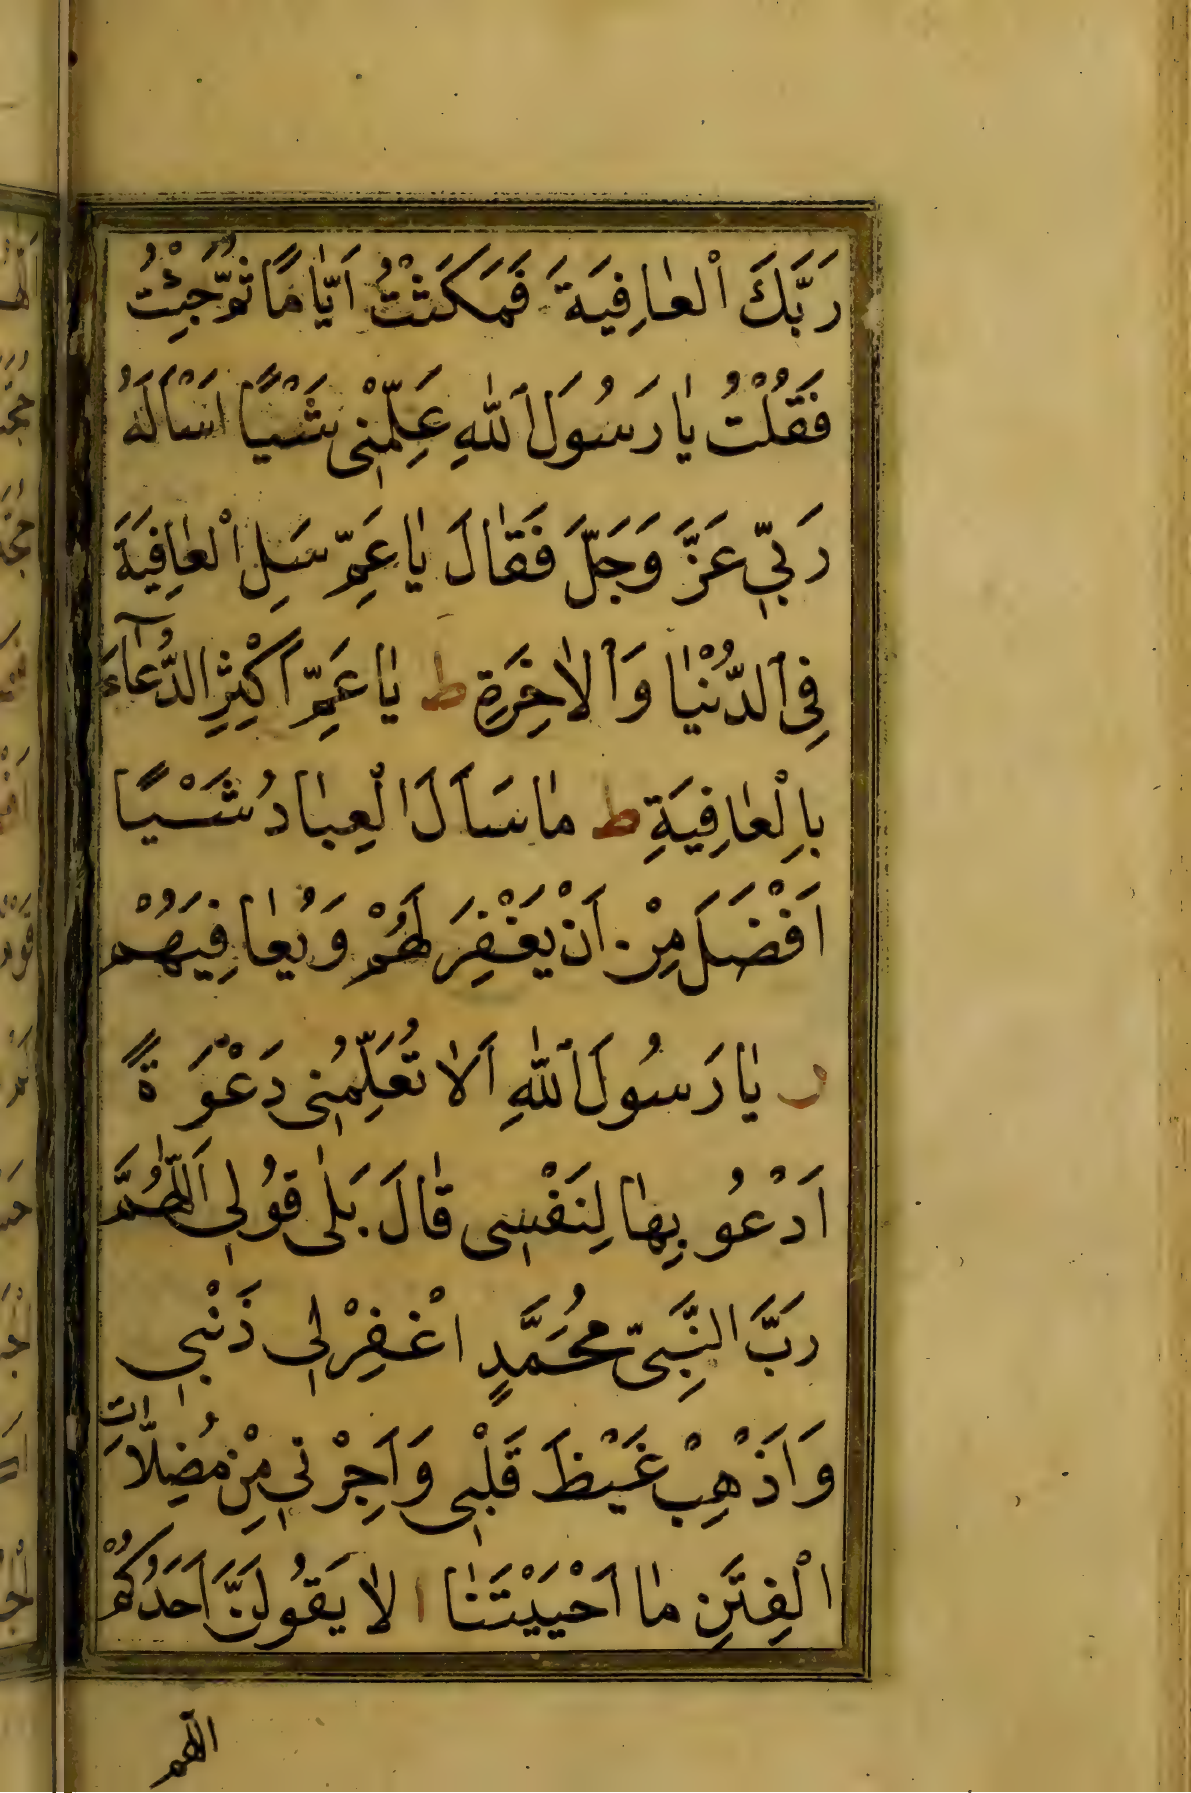 رَبَّكَ الْعَافِيَةَ فَمَكَثْتُ اَيَّامًا ثُمَّ جِئْتُ
فَقُلْتُ يَا رَسُولَ اللّٰهِ عَلِّمْنِى شَيْئًا اَسْاَلُهُ
رَبِّي عَزَّ وَجَلَّ فَقَالَ يَا عَمِّ سَلِ الْعَافِيَةَ
فِى الدُّنْيَا وَالْاٰخِرَةِ ط يَا عَمِّ اَكْثِرِ الدُّعَآءَ
بِالْعَافِيَةِ ط مَا سَاَلَ الْعِبَادُ شَيْئًا
اَفْضَلَ مِنْ اَنْ يَغْفِرَ لَهُمْ وَيُعَافِيَهُمْ
ر يَا رَسُولَ اللّٰهِ اَلَا تُعَلِّمُنِى دَعْوَةً
اَدْعُو بِهَا لِنَفْسِى قَالَ بَلٰى قُولِى اَللّٰهُمَّ
رَبَّ النَّبِىِّ مُحَمَّدٍ اغْفِرْ لِى ذَنْبِى
وَاَذْهِبْ غَيْظَ قَلْبِى وَاَجِرْنِى مِنْ مُضِلَّاتِ
الْفِتَنِ مَا اَحْيَيْتَنَا ا لَا يَقُولَنَّ اَحَدُكُمْ
اللهم